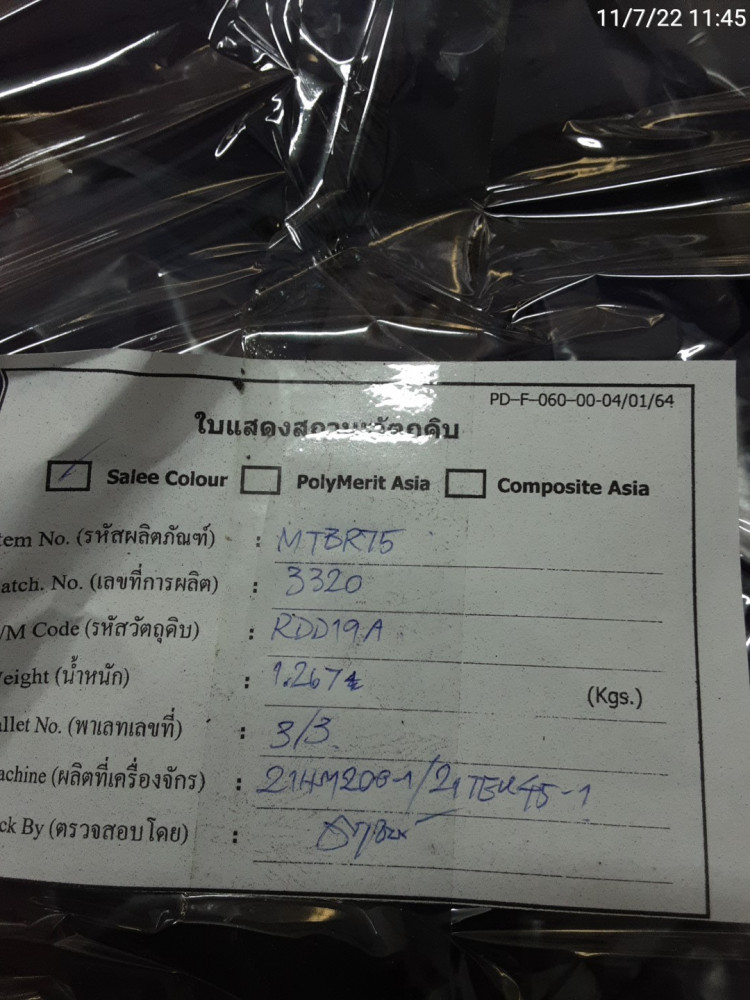 11/7/22 11:45
PD-F-060-00-04/01/64
ใบแสดงสถานะวัตถุดิบ
Salee Colour PolyMerit Asia Composite Asia
tem No. (รหัสผลิตภัณฑ์) : MTBR75
atch. No. (เลขที่การผลิต) : 3320
/M Code (รหัสวัตถุดิบ) : RDD19A
eight (น้ำหนัก) : 1.267 (Kgs.)
allet No. (พาเลทเลขที่) : 3/3
achine (ผลิตที่เครื่องจักร) :
ck By (ตรวจสอบโดย) :